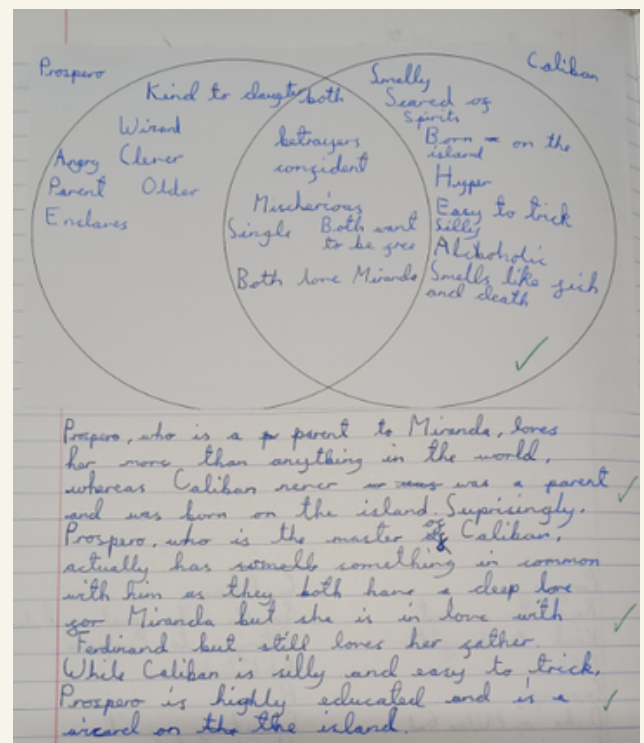 Prospero
Caliban
Kind to daughter
Wizard
Angry Clever
Parent Older
Enslaves
both
betrayers
confident
Mischevious
Single Both want
to be free
Both love Miranda
Smelly
Scared of
spirits
Born on the
island
Hyper
Easy to trick
silly
Alchoholic
Smells like fish
and death
Prospero, who is a parent to Miranda, loves
her more than anything in the world,
whereas Caliban never was a parent
and was born on the island. Suprisingly,
Prospero, who is the master of Caliban,
actually has something in common
with him as they both have a deep love
for Miranda but she is in love with
Ferdinand but still loves her father.
While Caliban is silly and easy to trick,
Prospero is highly educated and is a
wizard on the the island.